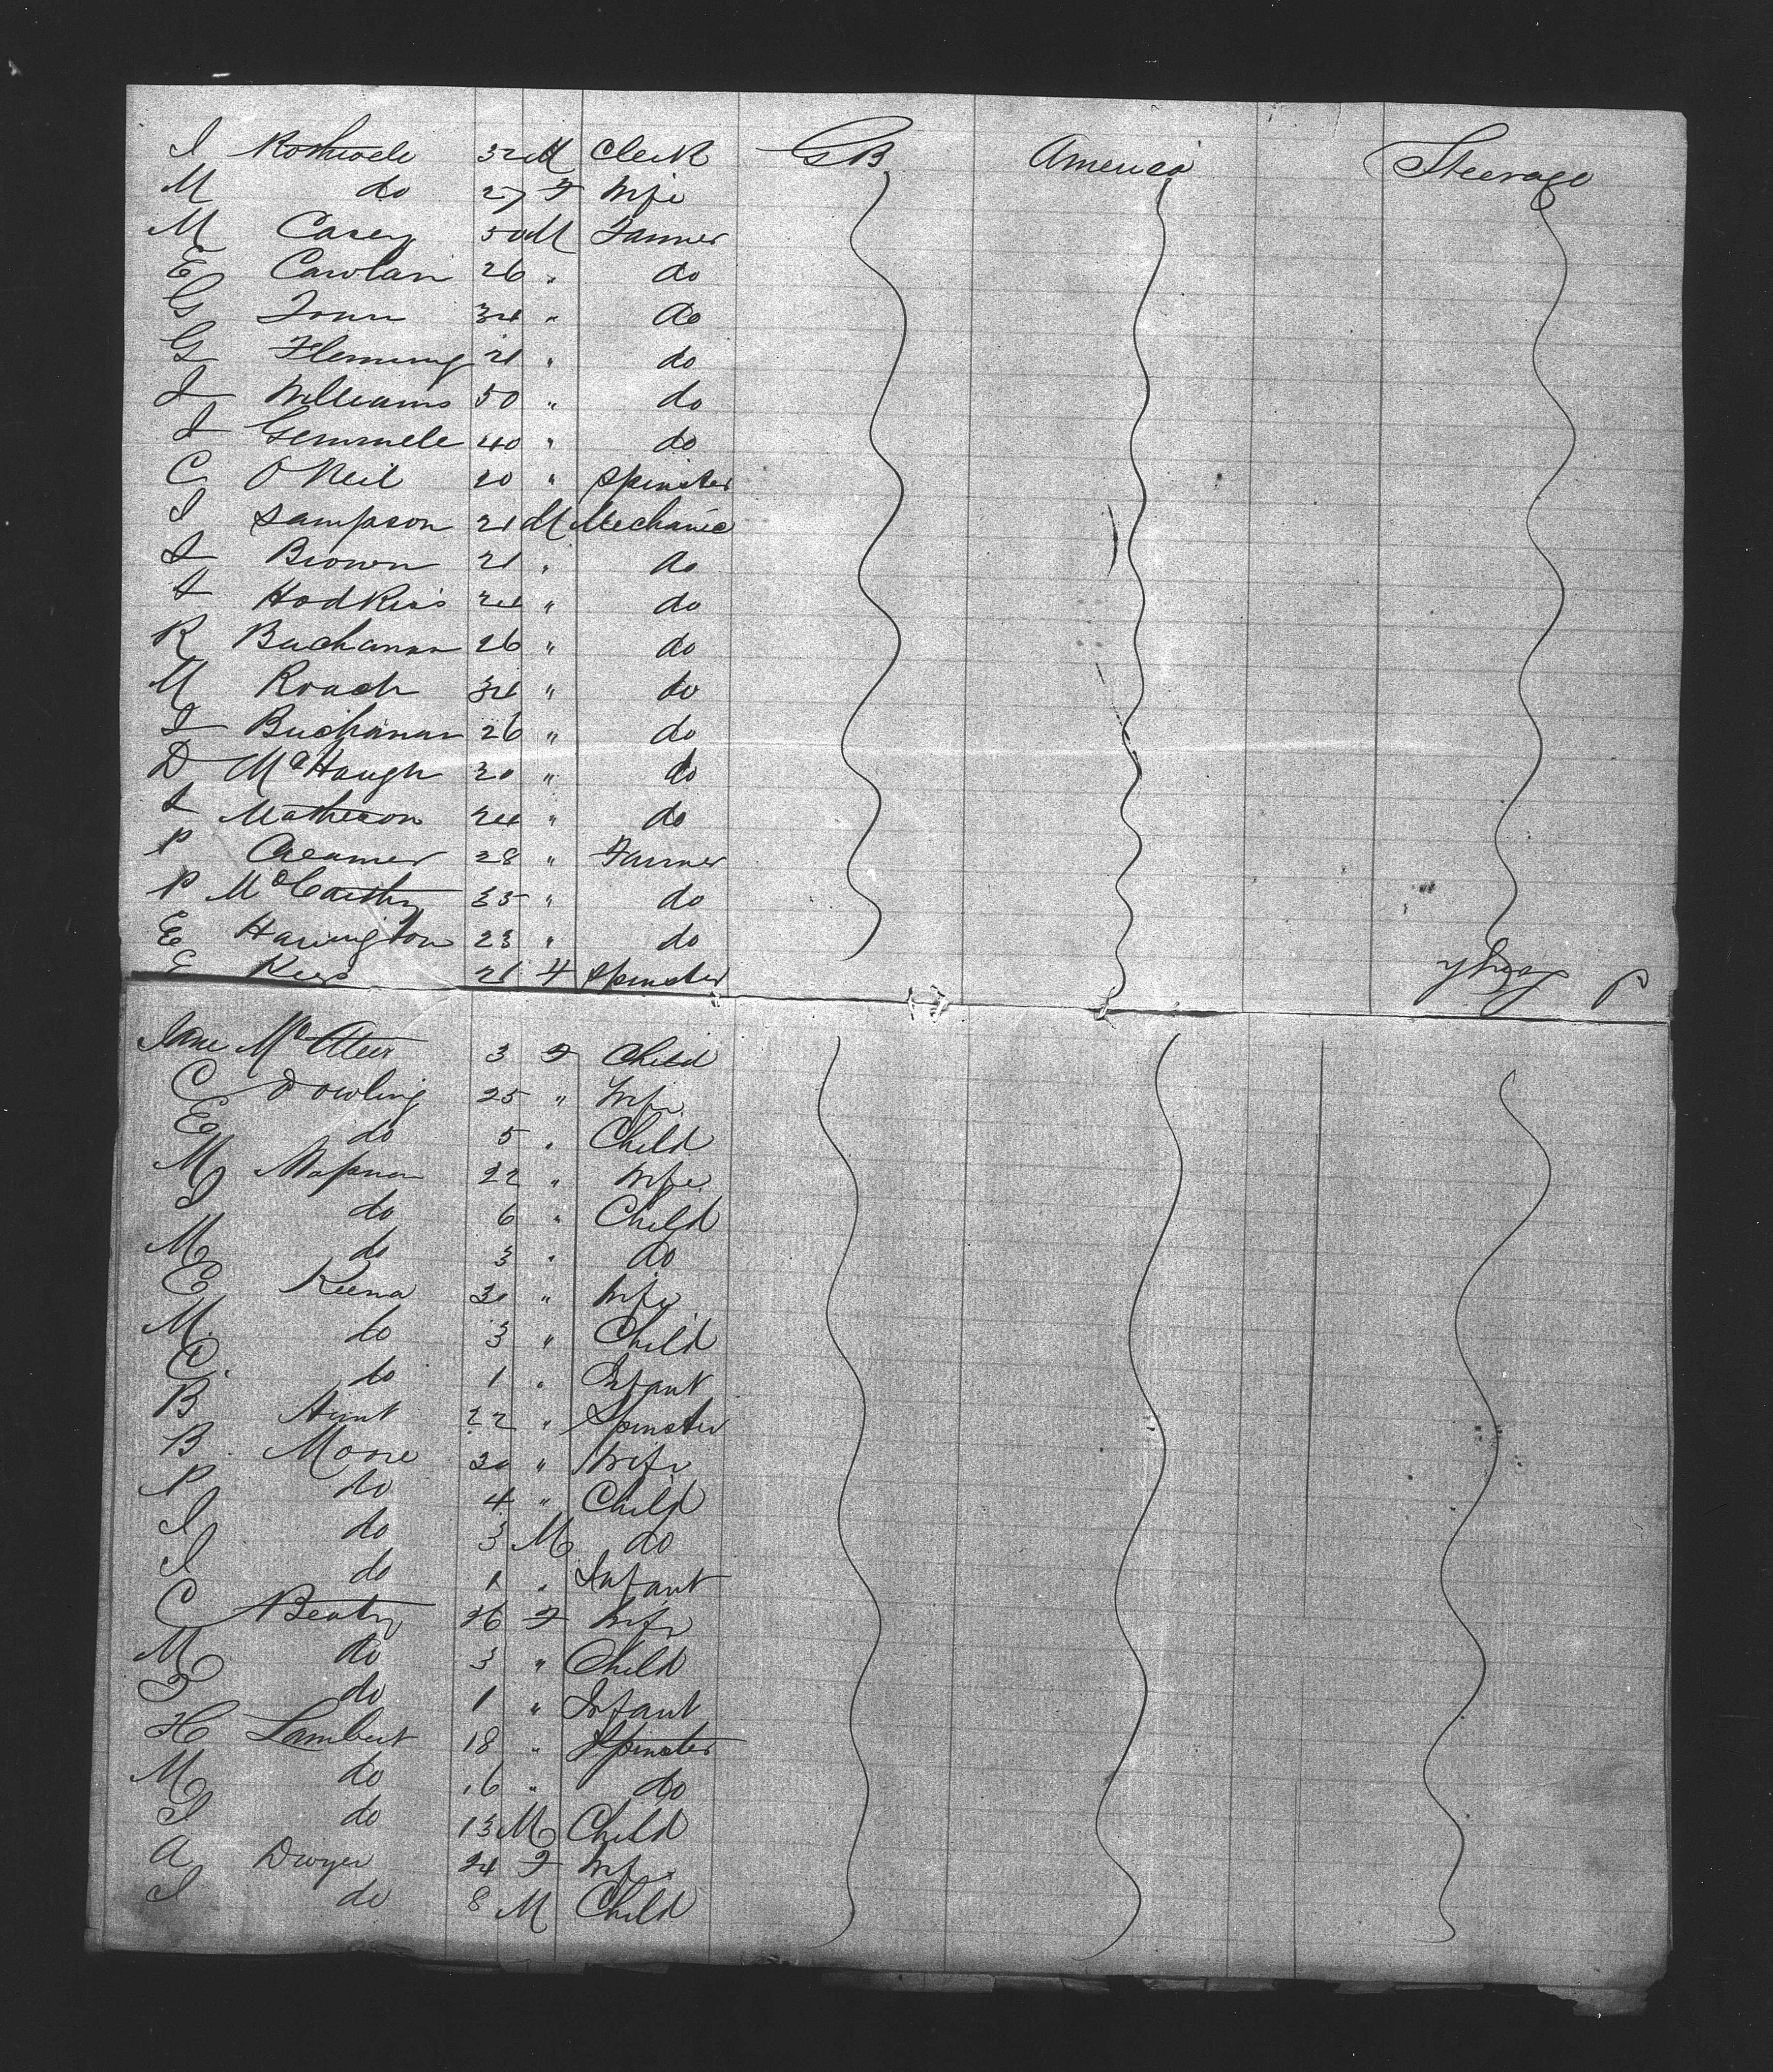 J Rothwele 32 M Clerk GB America Steerage
M do 27 F Wife
M Casey 50 M Farmer
E Carolan 26 " do
G 34 " do
G Fleming 21 " do
J Williams 50 " do
J Gemmele 40 " do
C O Neil 20 " Spinster
J Sampson 21 M Mechanic
J Brown 21 " do
J Hodkins 24 " do
R Buchanan 26 " do
M Roach 34 " do
J Buchanan 26 " do
D McHaugh 30 " do
J Matheson 24 " do
P Creamer 28 " Farmer
P McCarthy 35 " do
E Harrington 23 " do
E 21 F Spinster
Jane McAteer 3 F Child
C Dowling 25 " Wife
E do 5 " Child
M 22 " Wife
J do 6 " Child
M do 3 " do
C Keena 30 " Wife
M do 3 " Child
C. do 1 " Infant
B Hunt 22 " Spinster
B. Moore 30 " Wife
P do 4 " Child
J do 3 M do
J do 1 " Infant
C Beaty 26 F Wife
M do 3 " Child
F do 1 " Infant
H Lambert 18 " Spinster
M do 16 " do
J do 13 M Child
A Dwyer 24 F Wife
J do 8 M Child